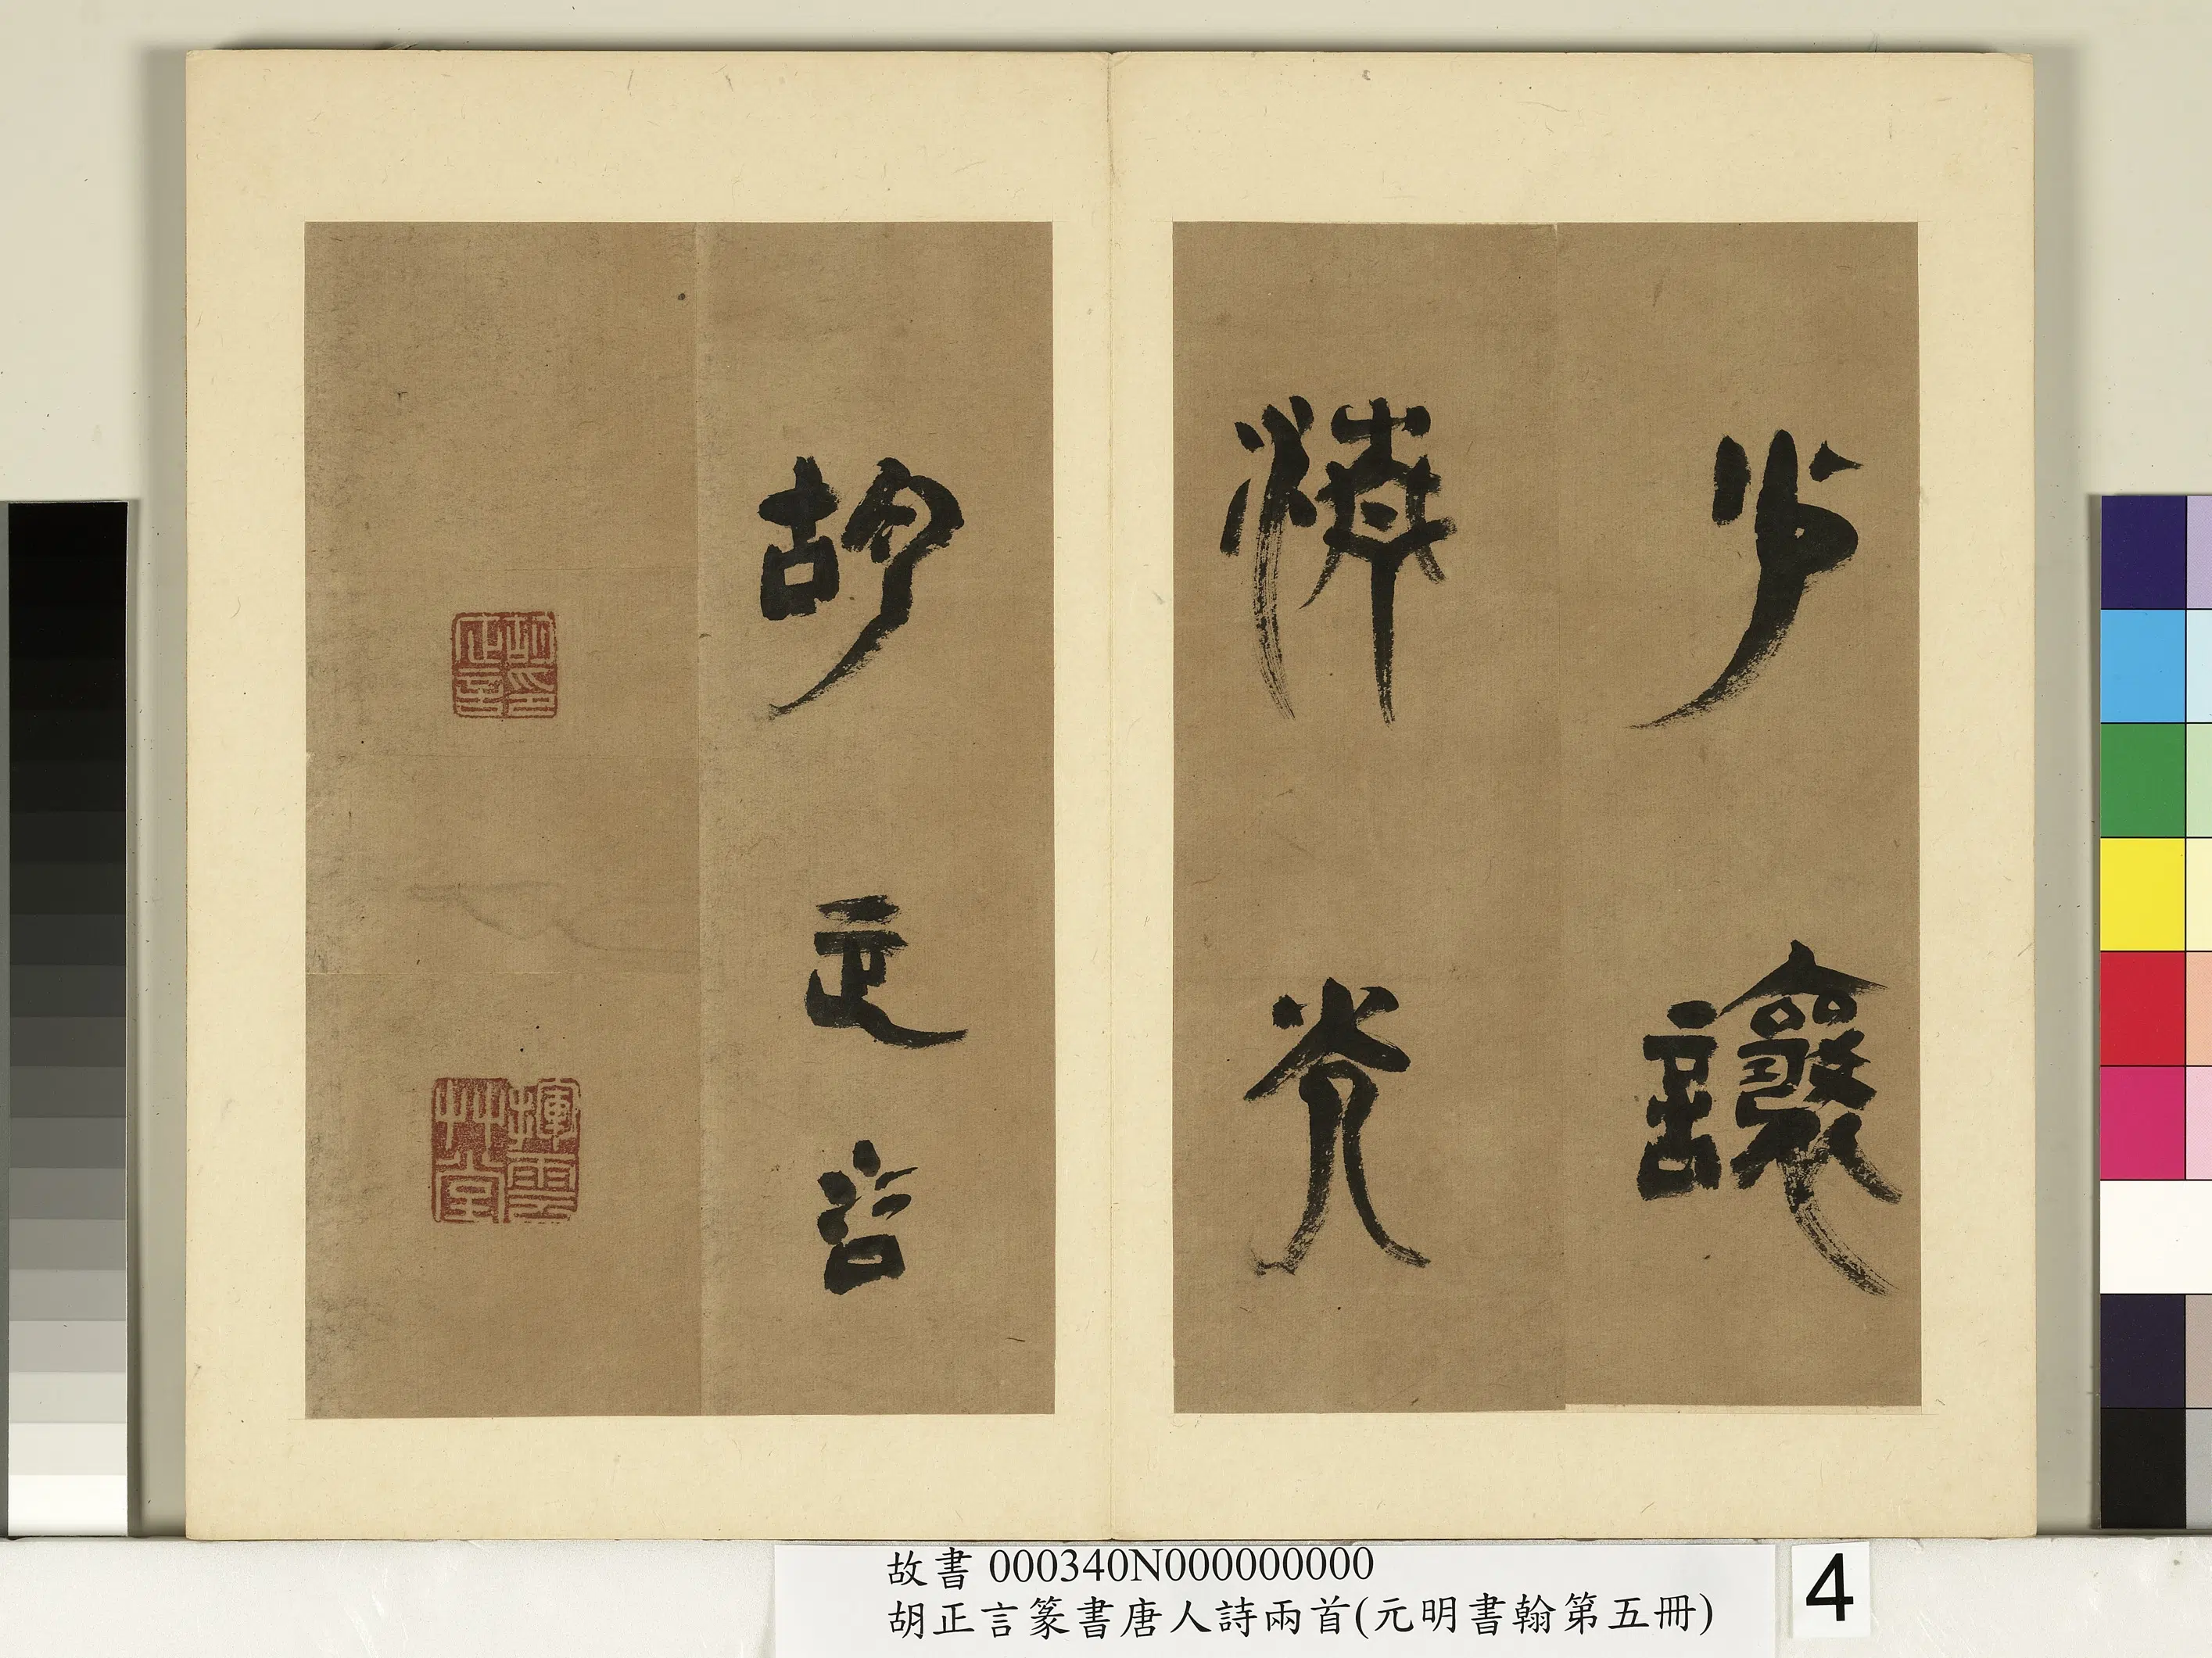 少讓
光
胡正言
胡正言印
揮雲艸堂
故書 000340N000000000
胡正言篆書唐人詩兩首(元明書翰第五冊)
4